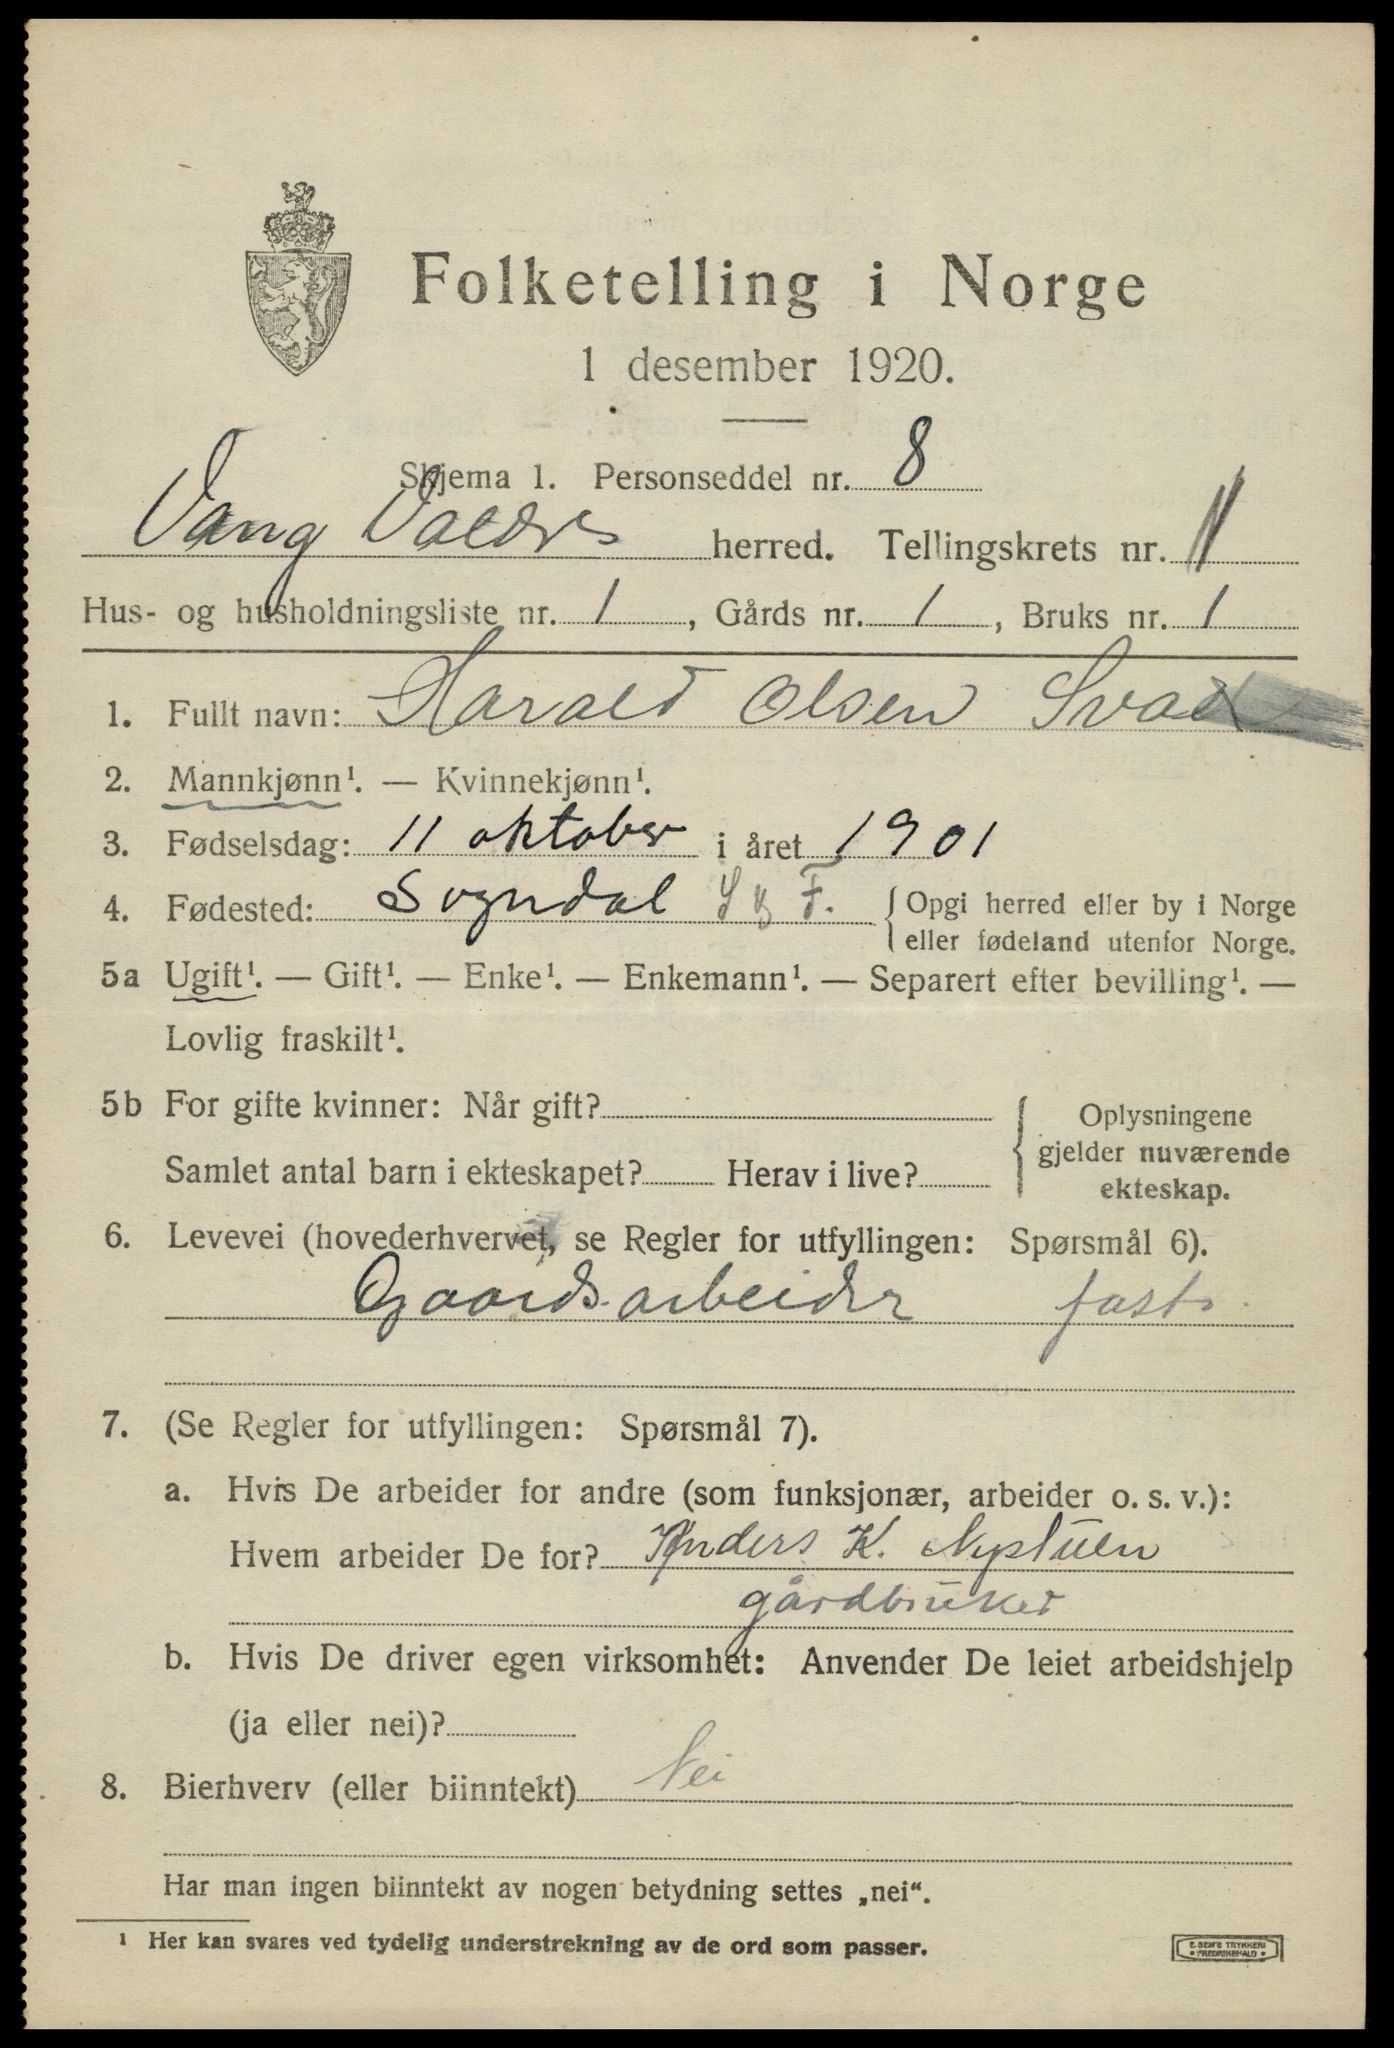 Folketelling i Norge
1 desember 1920.
Skjema 1. Personseddel nr. 8
Vang Valdres herred. Tellingskrets nr.
Hus- og husholdningsliste nr. 1, Gårds nr. 1, Bruks nr. 1
1. Fullt navn: Harald Olsen
2. Mannkjønn¹. — Kvinnekjønn¹.
3. Fødselsdag: 11 oktober i året 1901
4. Fødested: Sogndal S og F. { Opgi herred eller by i Norge
eller fødeland utenfor Norge.
5a Ugift¹. — Gift¹. — Enke¹. — Enkemann¹. — Separert efter bevilling¹. —
Lovlig fraskilt¹.
5b For gifte kvinner: Når gift?
Samlet antal barn i ekteskapet? Herav i live?
Oplysningene
gjelder nuværende
ekteskap.
6. Levevei (hovederhvervet, se Regler for utfyllingen: Spørsmål 6).
Gaardsarbeider fast.
7. (Se Regler for utfyllingen: Spørsmål 7).
a. Hvis De arbeider for andre (som funksjonær, arbeider o. s. v.):
Hvem arbeider De for? Anders K. Nystuen
gårdbruker
b. Hvis De driver egen virksomhet: Anvender De leiet arbeidshjelp
(ja eller nei)?
8. Bierhverv (eller biinntekt) Nei
Har man ingen biinntekt av nogen betydning settes „nei“.
¹ Her kan svares ved tydelig understrekning av de ord som passer.
E. SEM'S TRYKKERI
• FREDRIKSHALD •